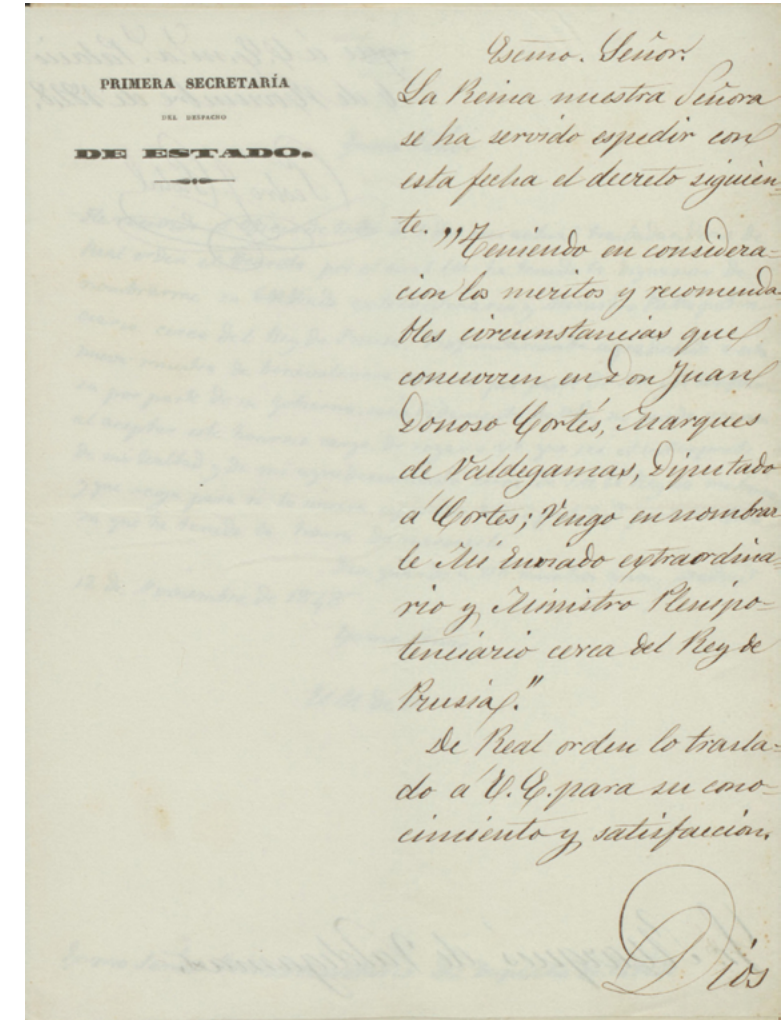 PRIMERA SECRETARÍA
DEL DESPACHO
DE ESTADO.
Esemo. Señor.
La Reina nuestra Señora
se ha servido espedir con
esta fecha el decreto siguien-
te. "Teniendo en considera-
cion los meritos y recomenda-
bles circunstancias que
concurren en Don Juan
Donoso Cortés, Marques
de Valdegamas, Diputado
á Cortes; Vengo en nombrar
le Mi Enviado extraordina-
rio y Ministro Plenipo-
tenciario cerca del Rey de
Prusia."
De Real orden lo trasla-
do á V.E. para su cono-
cimiento y satisfaccion.
Dios